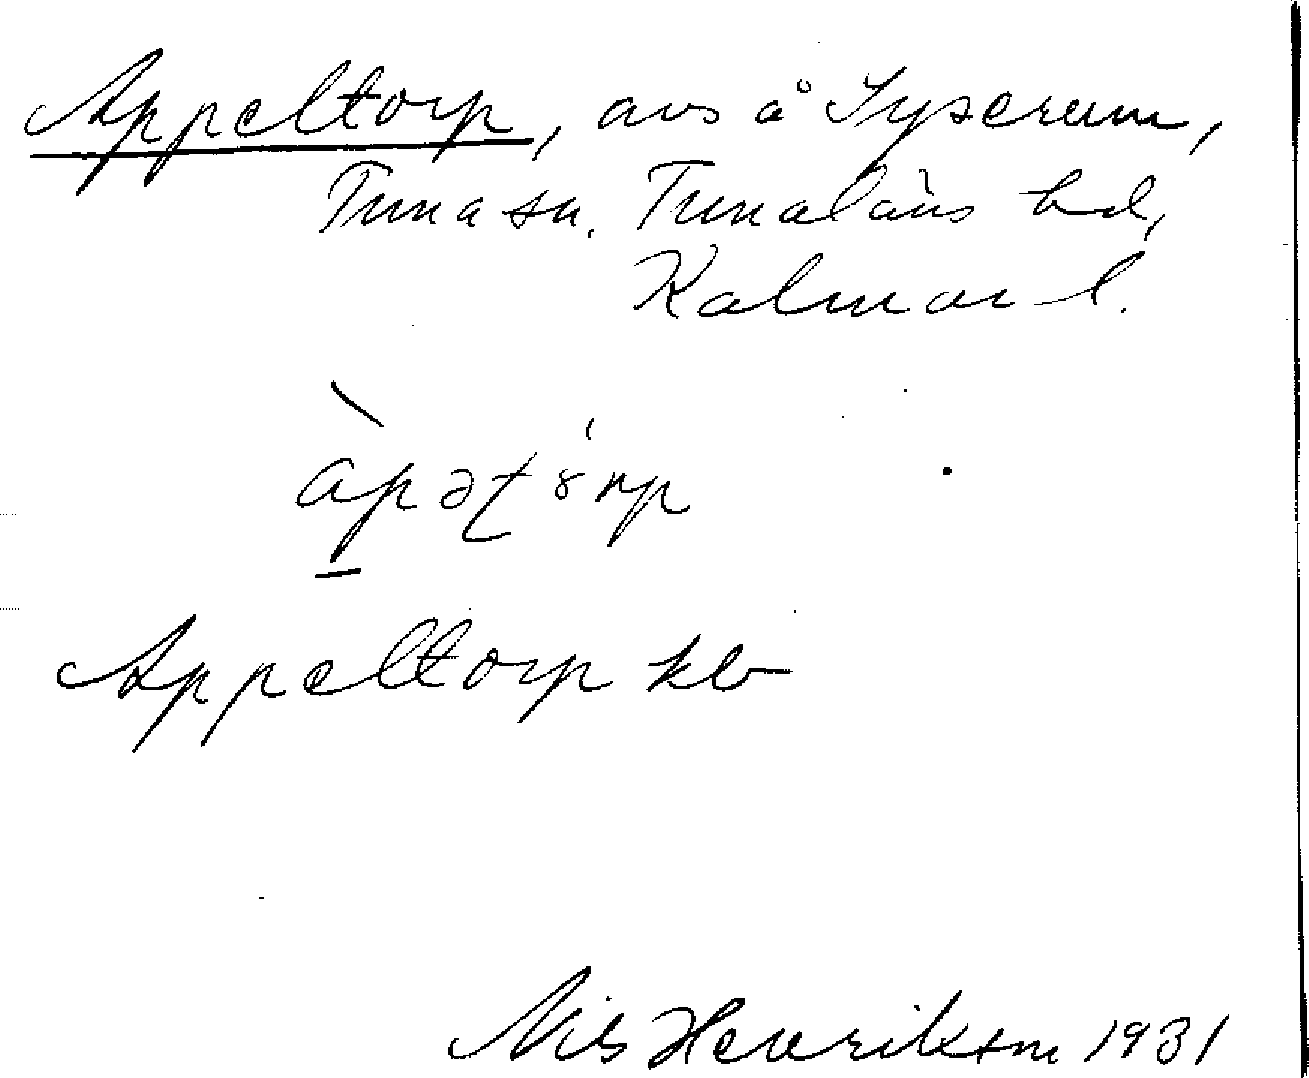 Appeltorp, avs å Syserum,
Tuna sn, Tunaläns hd,
Kalmar l.
Appeltorp kb
Nils Henrikson 1931